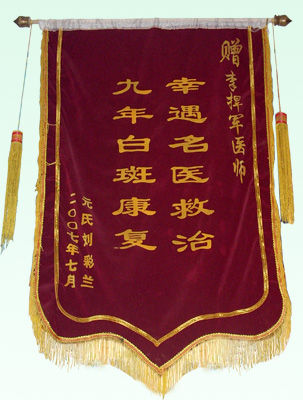 赠李捍军医师
幸遇名医救治
九年白斑康复
元氏刘彩兰
二〇〇七年七月